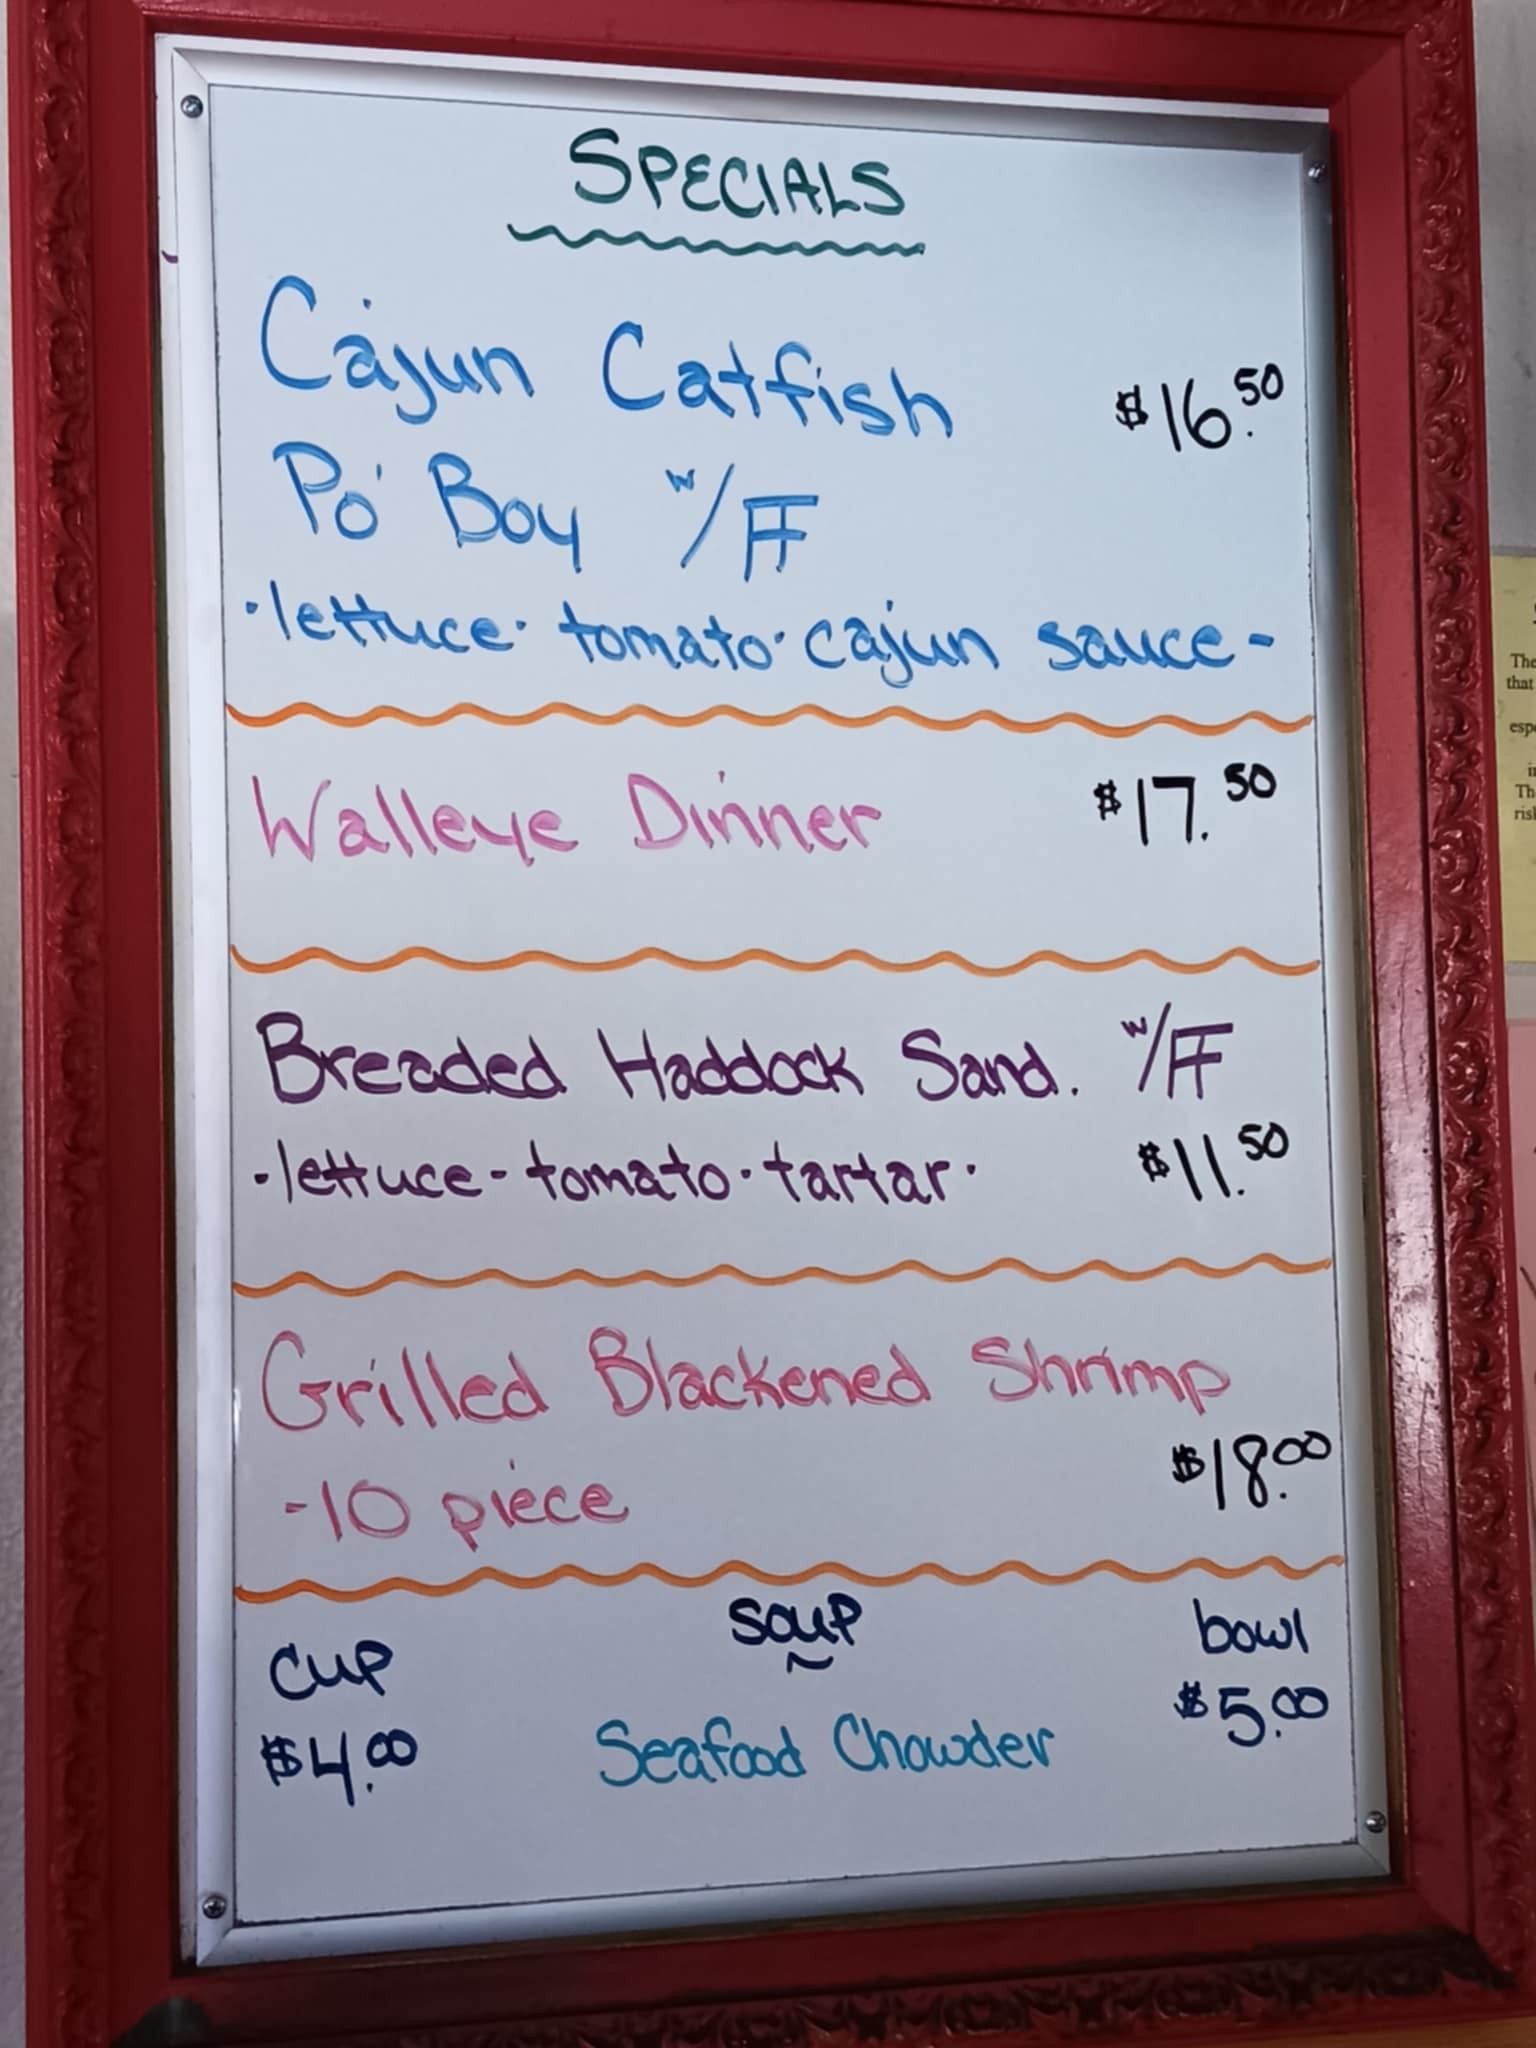 SPECIALS
Cajun Catfish $16.50
Po' Boy w/FF
·lettuce· tomato· cajun sauce-
Walleye Dinner $17.50
Breaded Haddock Sand. w/FF
·lettuce-tomato·tartar· $11.50
Grilled Blackened Shrimp
-10 piece $18.00
cup soup bowl
$4.00 Seafood Chowder $5.00
The
that
espe
Th